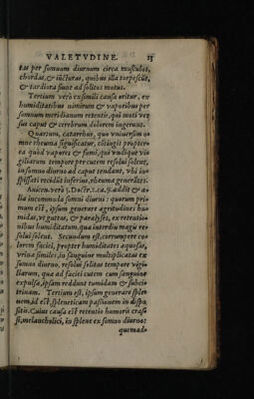 VALETVDINE. 13
tas per somnum diurnum circa musculos,
chordas, & iũcturas, quibus illa torpescũt,
& tardiora fiunt ad solitos motus.
Tertium verò ex simili causa oritur, ex
humiditatibus nimirum & vaporibus per
somnum meridianum retentis, qui moti ver
sus caput & cerebrum dolorem ingerunt.
Quartum, catarrhus, quo vniuersim o=
mne rheuma significatur, cõtingit propterea
quòd vapores & fumi, qui vndique vi=
giliarum tempore per cutem resolui solent,
in somno diurno ad caput tendunt, vbi in=
spissati recidũt inferius, rheuma generãtes.
Auicen. verò 3. Doctr. 2. ca. 9. addit & a=
lia incommoda somni diurni: quorum pri=
mum est, ipsum generare aegritudines hu=
midas, vt guttas, & paralyses, ex retentio=
nibus humiditatum, quae interdiu magis re=
solui solent. Secundum est, corrumpere co=
lorem faciei, propter humiditates aquosas,
vrinae similes, in sanguine multiplicatas ex
somno diurno, resolui solitas tempore vigi=
liarum, quae ad faciei cutem cum sanguine
expulsae, ipsam reddunt tumidam & subci=
trinam. Tertium est, ipsum generare sple=
nem, id est, spleneticam passionem in dispo
sitis. Cuius causa est retentio humoris cras=
si, melancholici, in splene ex somno diurno:
quemad=